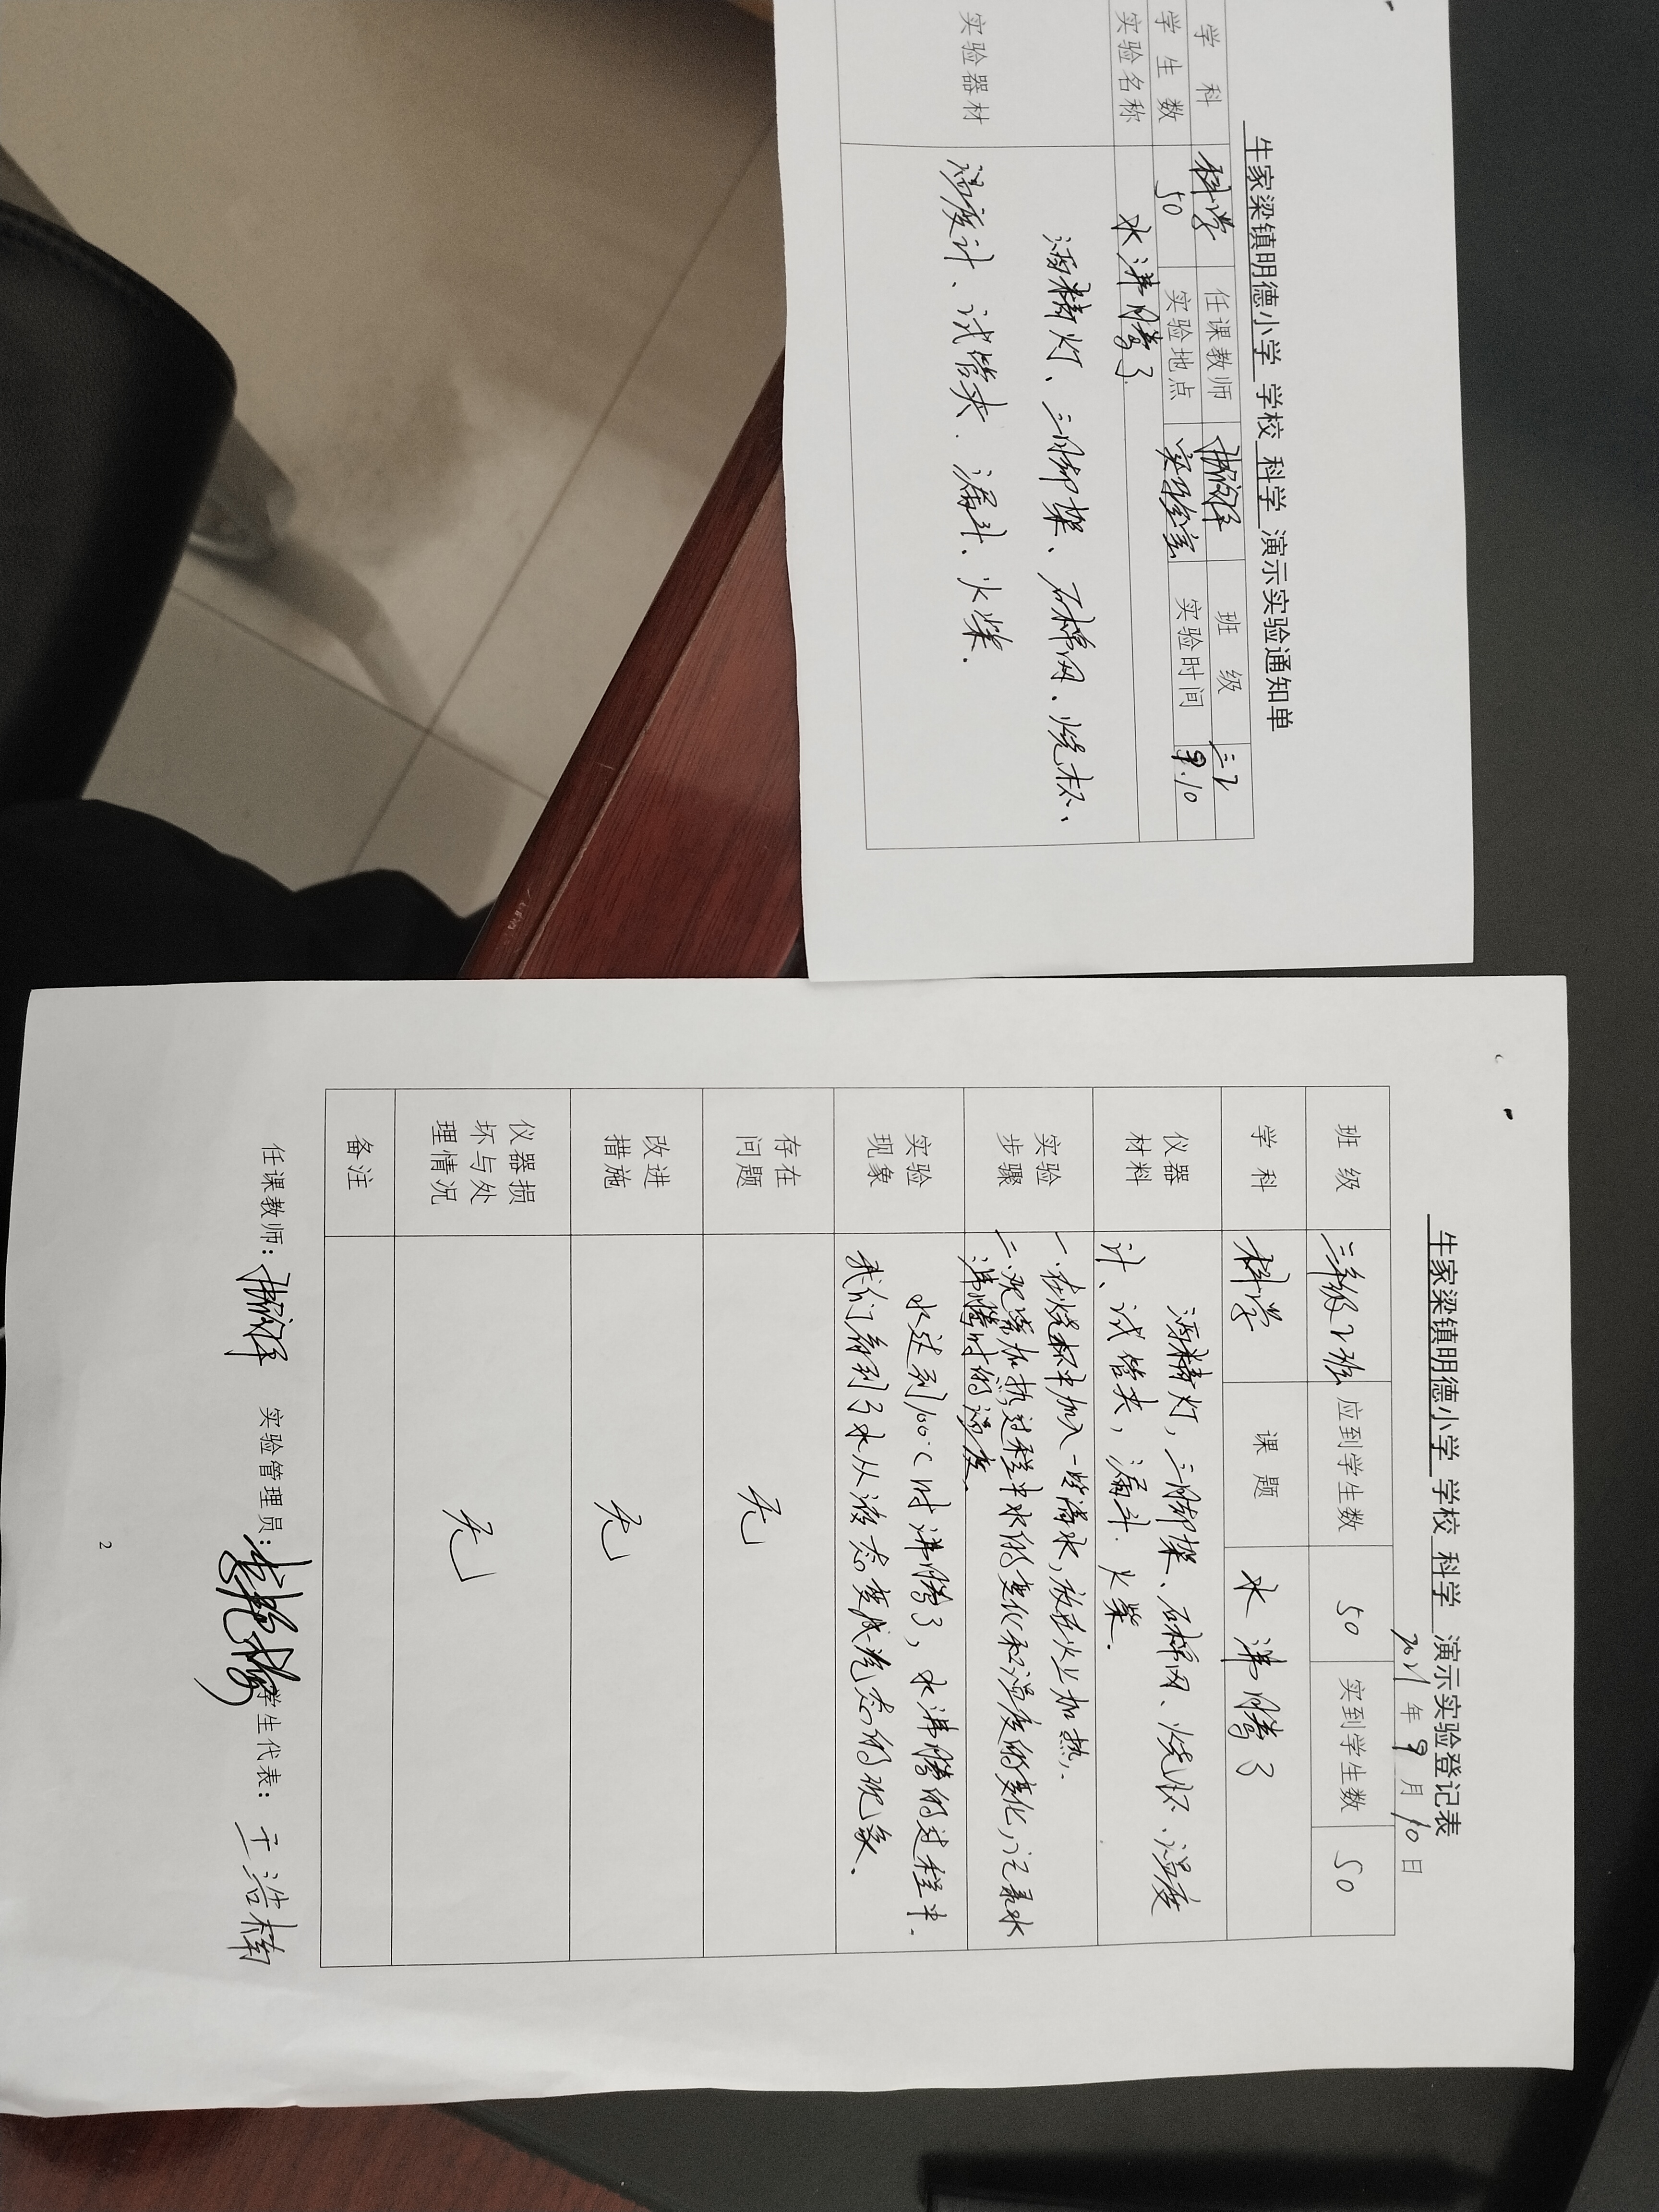 牛家梁镇明德小学 学校 科学 演示实验通知单
学 科 科学 任课教师 班 级 三2
学 生 数 50 实验地点 实验室 实验时间 9.10
实验名称 水沸腾了
实验器材
酒精灯、三脚架、石棉网、烧杯、
温度计、试管夹、漏斗、火柴.
牛家梁镇明德小学 学校 科学 演示实验登记表
2021 年 9 月 10 日
班 级 三年级2班 应到学生数 50 实到学生数 50
学 科 科学 课 题 水沸腾了
仪器
材料
酒精灯,三脚架、石棉网、烧杯、温度
计、试管夹,漏斗.火柴.
实验
步骤
一.在烧杯中加入一些清水,放在火上加热.
二.观察加热过程中水的变化和温度的变化,记录水
沸腾时的温度.
实验
现象
水达到100℃时沸腾了,水沸腾的过程中.
我们看到了水从液态变成气态的现象.
存在
问题
无
改进
措施
无
仪器损
坏与处
理情况
无
备注
任课教师: 实验管理员: 学生代表: 王浩楠
2